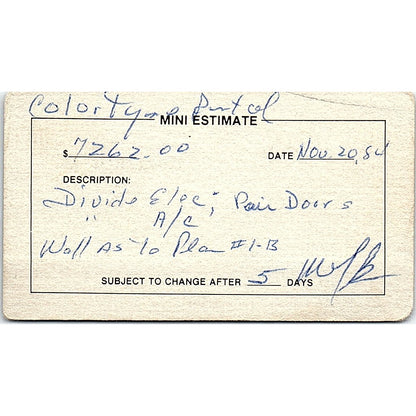 ColorTyme Rental
MINI ESTIMATE
$ 7262.00 DATE Nov. 20, 84
DESCRIPTION:
Divide Elec; Pair Doors
" A/C
Wall As To Plan #1-B
SUBJECT TO CHANGE AFTER 5 DAYS